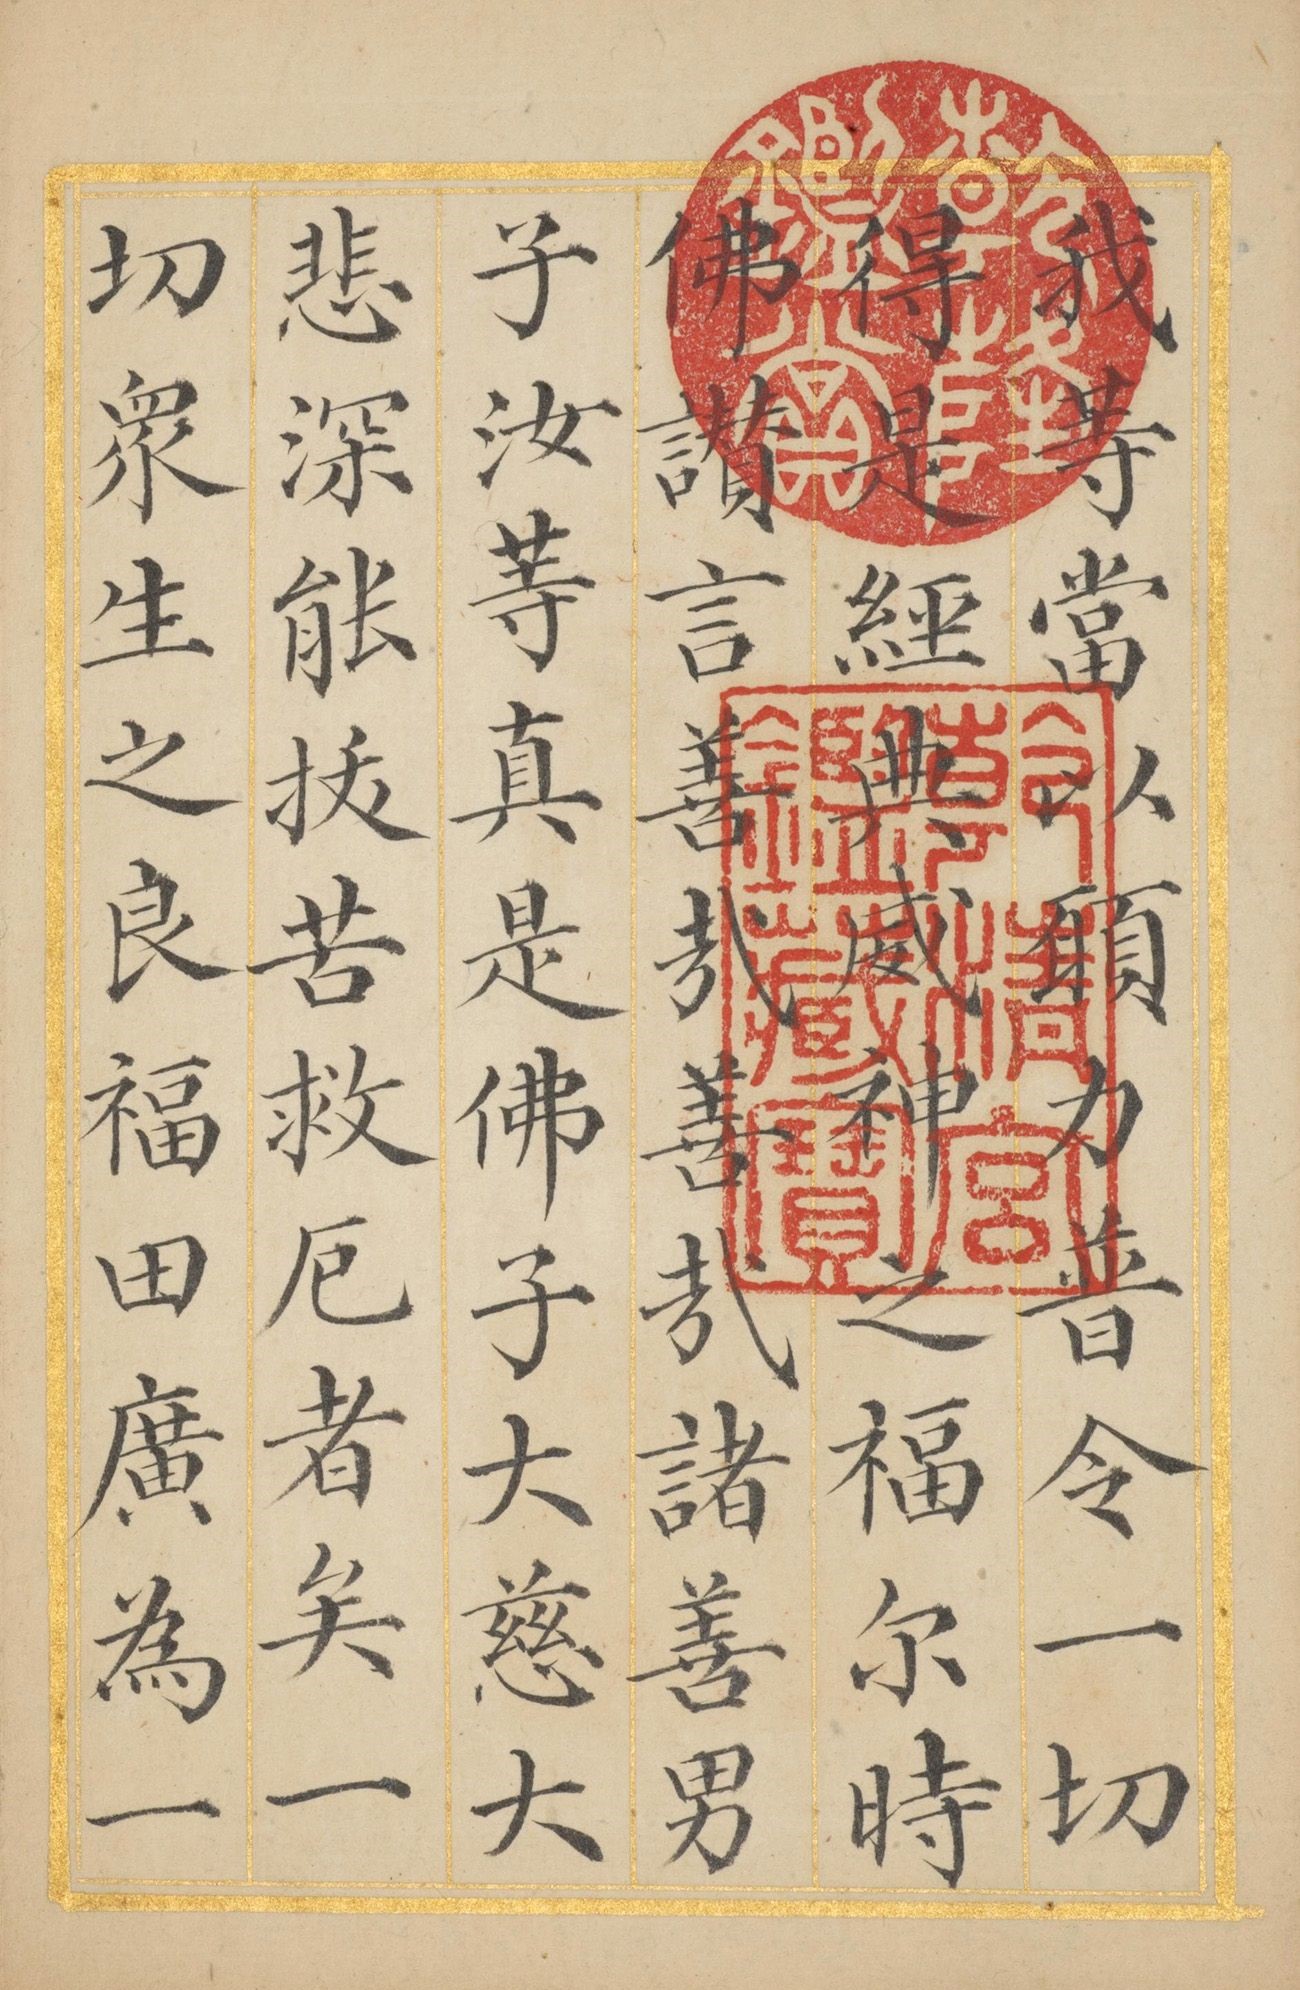 我等當以願力普令一切
得是經典威神之福尔時
佛讃言善哉善哉諸善男
子汝等真是佛子大慈大
悲深能拔苦救厄者矣一
切衆生之良福田廣為一
乾清宮鑒藏寶